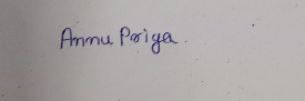 Annu Priya.